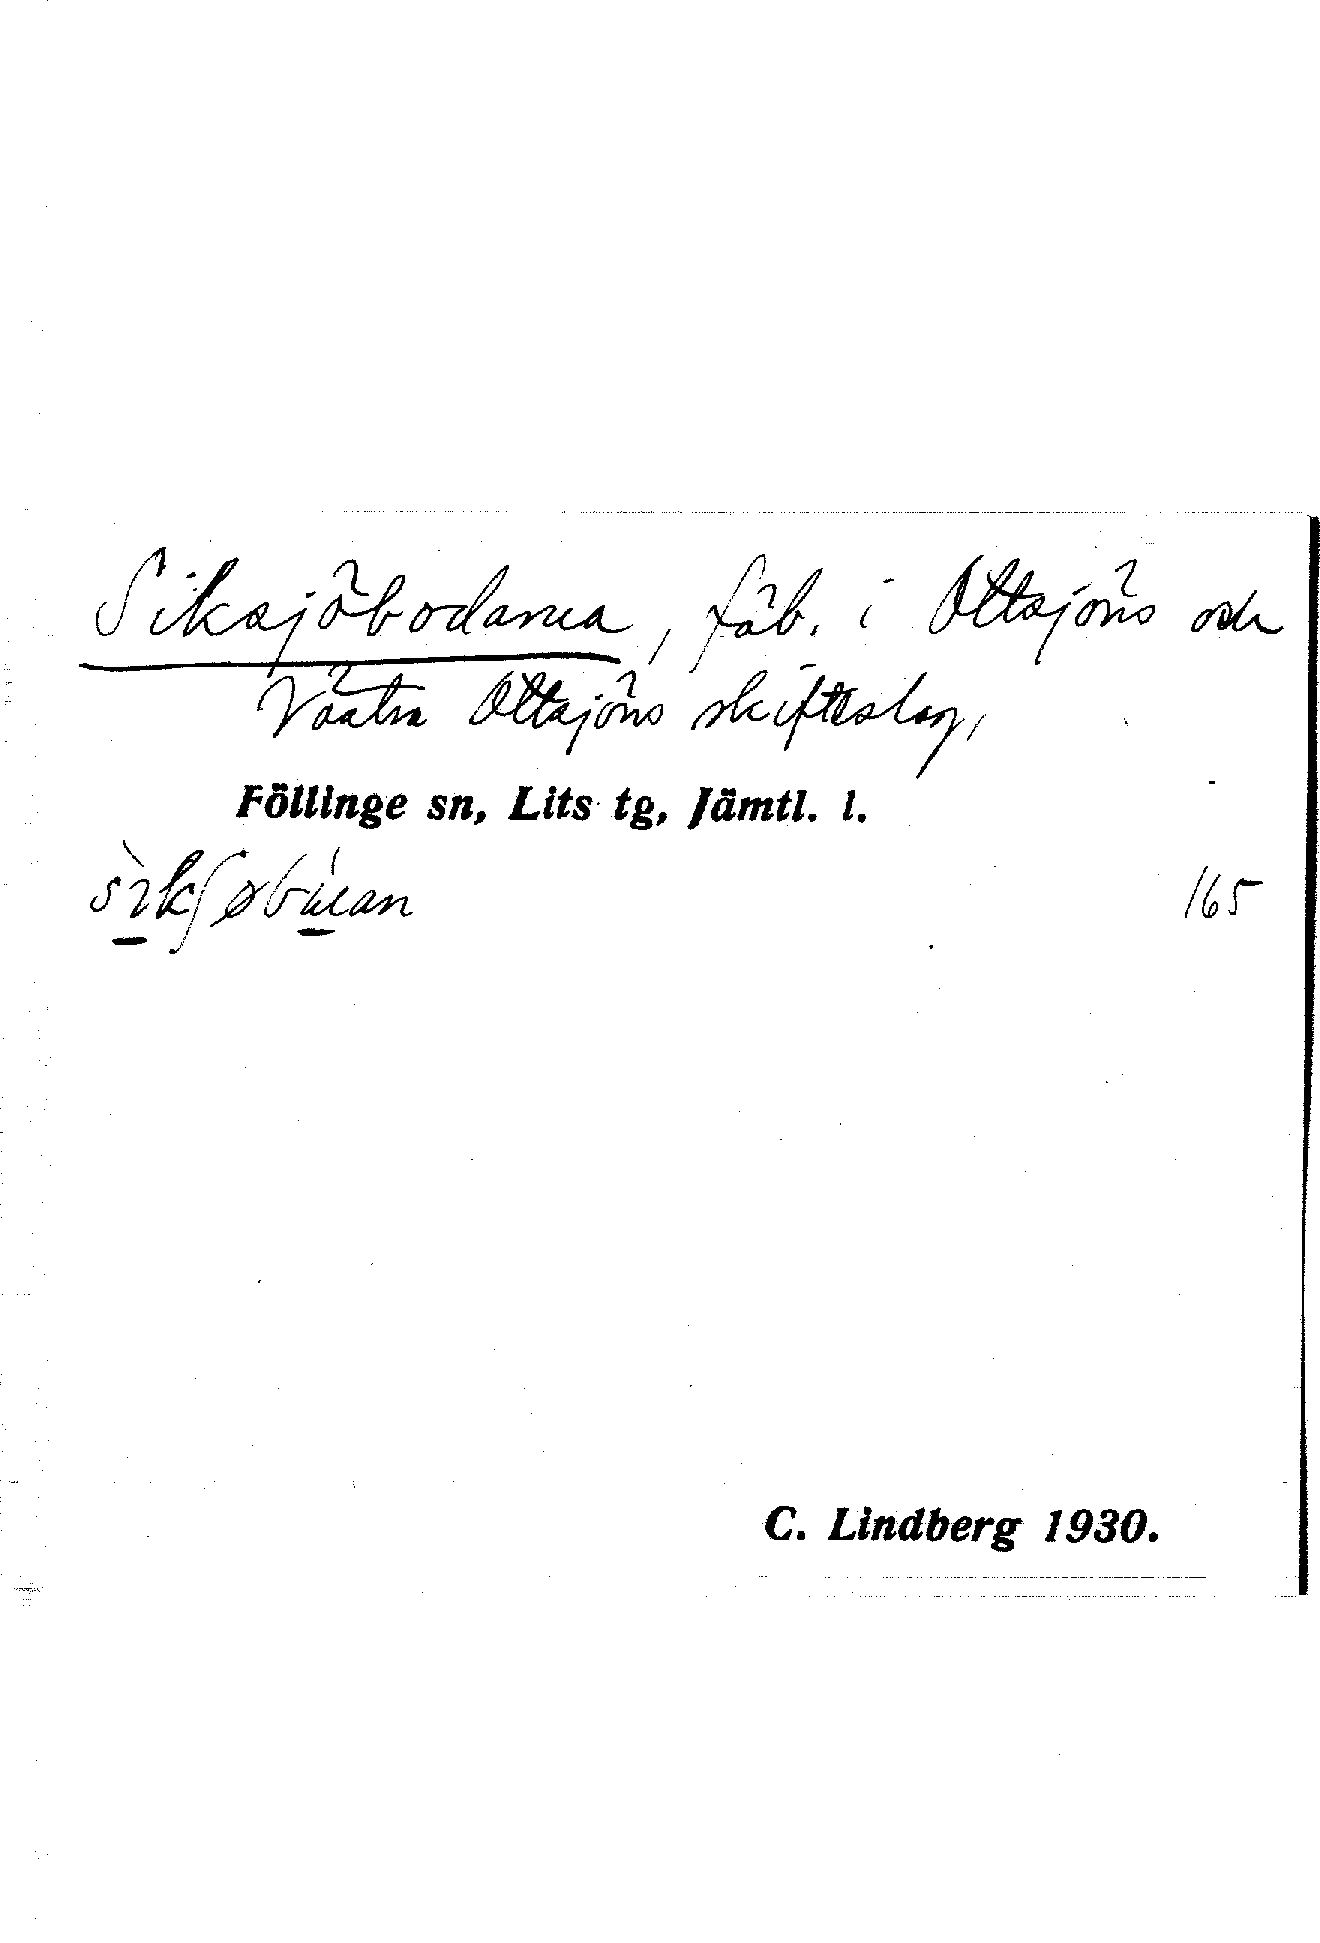 Siksjöbodarna, fäb. i Ottsjöns och
Västra Ottsjöns skifteslag,
Föllinge sn, Lits tg, Jämtl. l.
165
C. Lindberg 1930.